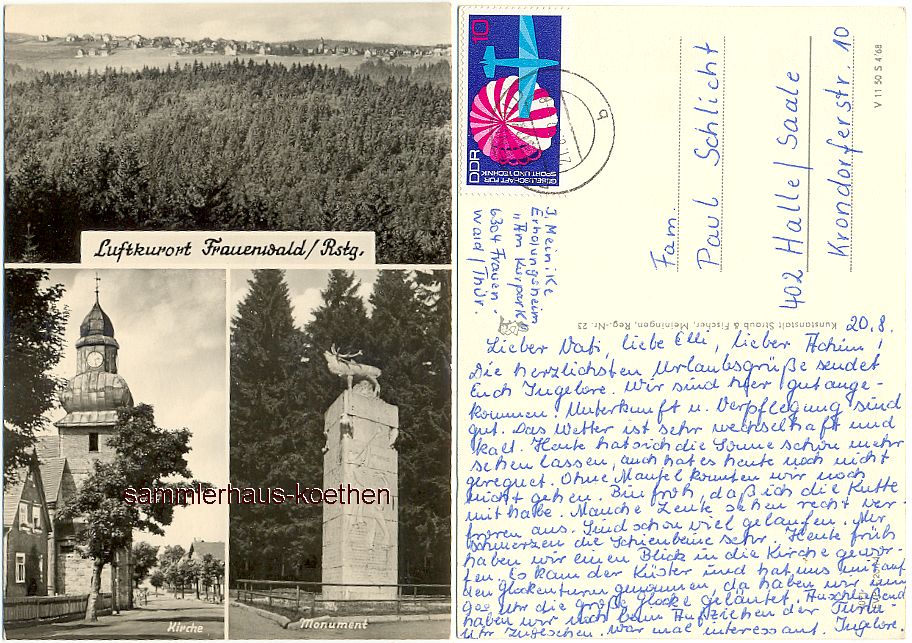 Luftkurort Frauenwald/Rstg.
Kirche
Monument
sammlerhaus-koethen
10
DDR
GESELLSCHAFT FÜR
SPORT UND TECHNIK
J. Meinike
Erholungsheim
"Am Kurpark"
6304 Frauen-
wald/Thür.
Fam.
Paul Schlicht
402 Halle/Saale
Krondorferstr. 10
V 11 50 S 4'68
Kunstanstalt Straub & Fischer, Meiningen, Reg.-Nr. 23
20.8.
Lieber Vati, liebe Elli, lieber Achim!
Die herzlichsten Urlaubsgrüße sendet
Euch Ingelore. Wir sind hier gut ange-
kommen. Unterkunft u. Verpflegung sind
gut. Das Wetter ist sehr wechselhaft und
kalt. Heute hat sich die Sonne schon mehr
sehen lassen, auch hat es heute noch nicht
geregnet. Ohne Mantel konnten wir noch
nicht gehen. Bin froh, daß ich die Kutte
mithabe. Manche Leute sehen recht ver-
froren aus. Sind schon viel gelaufen. Mir
schmerzen die Schienbeine sehr. Heute früh
haben wir einen Blick in die Kirche gewor-
fen. Es kam der Küster und hat uns mit auf
den Glockenturm genommen, da haben wir um
Uhr die große Glocke geläutet. Anschließend
haben wir noch beim Aufziehen der Turm-
uhr zugesehen. War mal interessant. Ingelore.